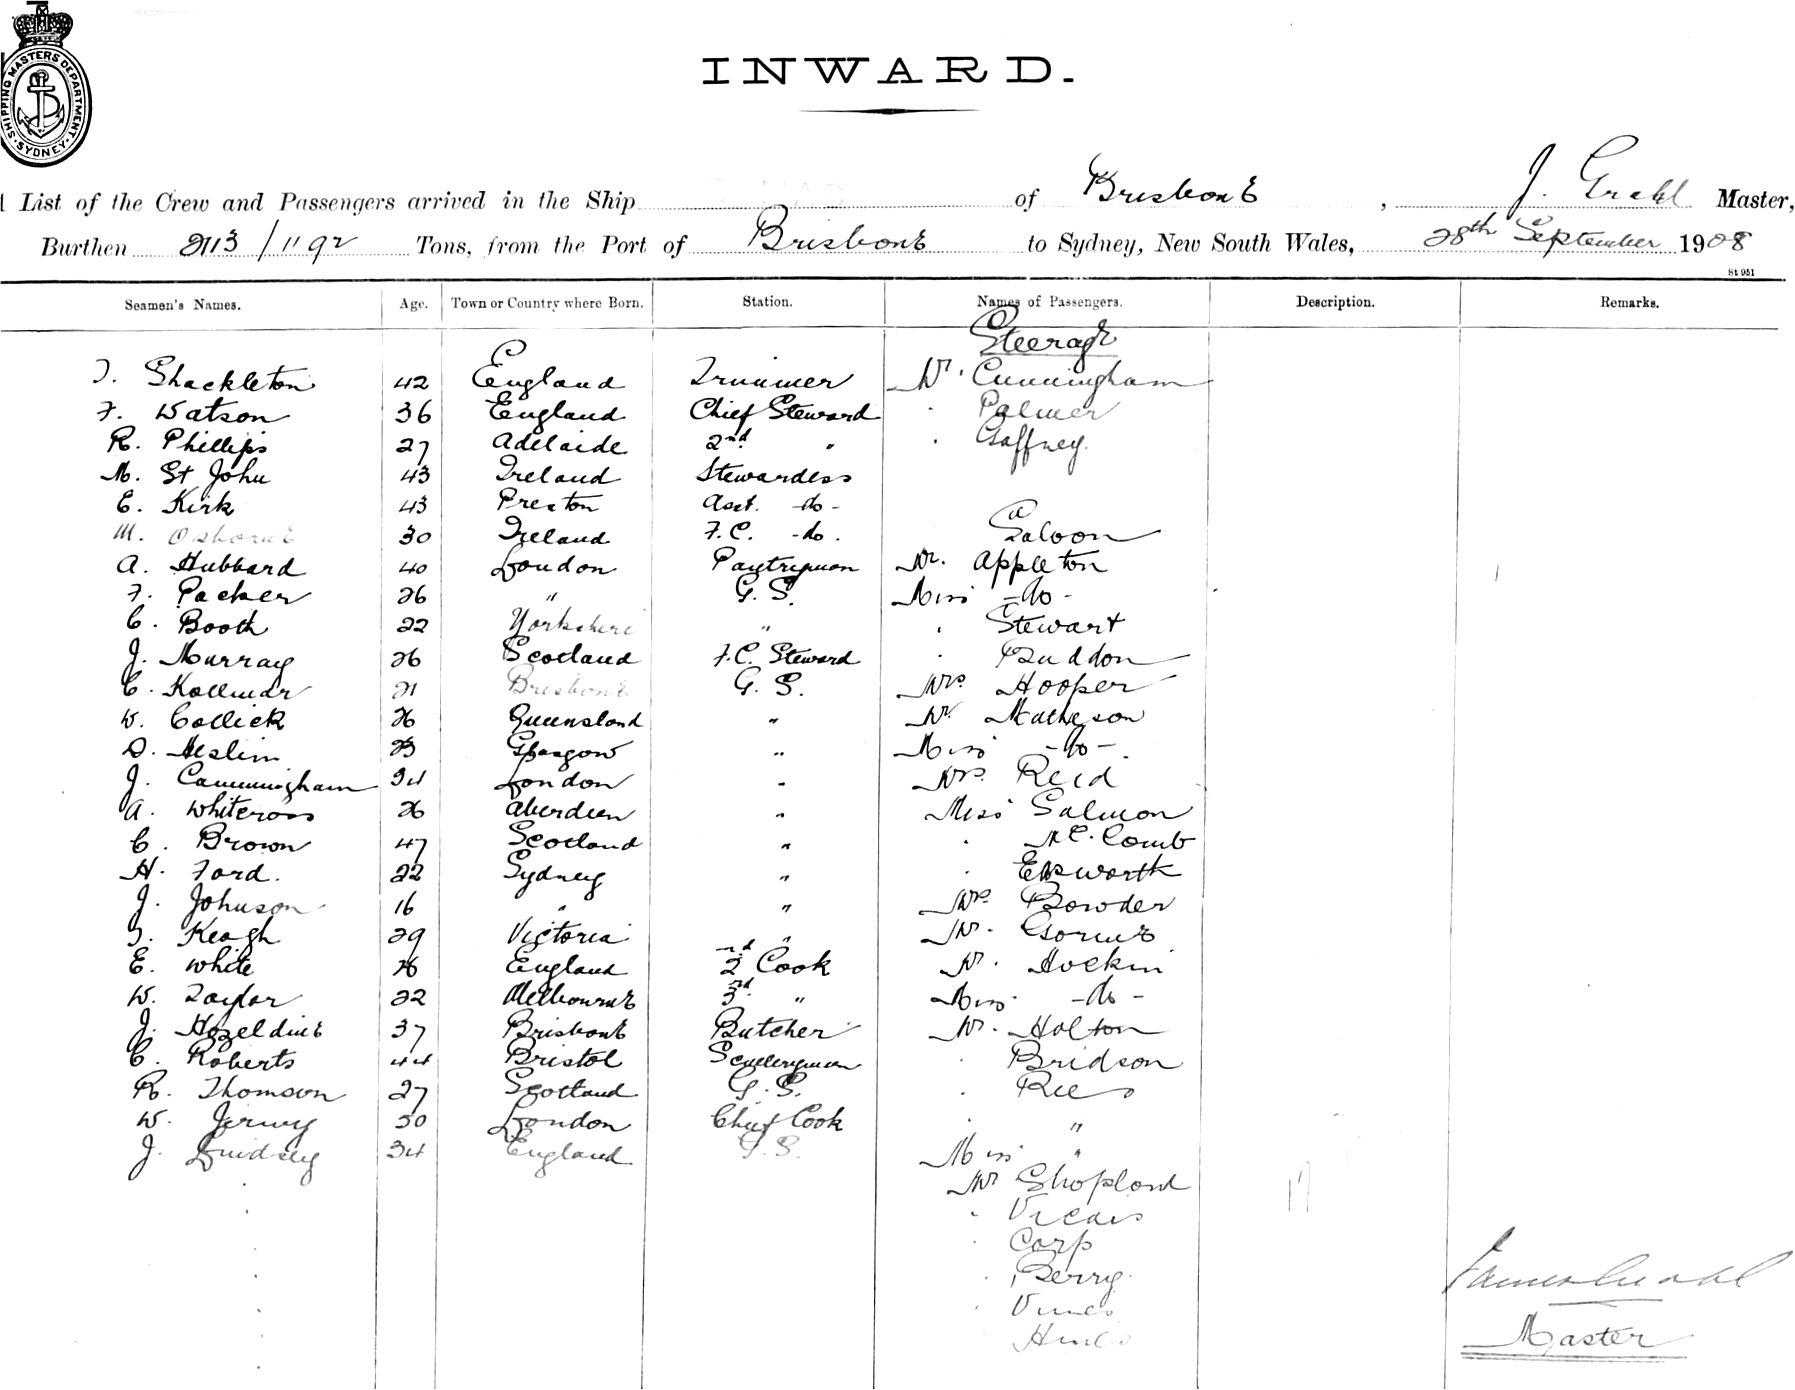 SHIPPING MASTERS DEPARTMENT. SYDNEY.
INWARD.
List of the Crew and Passengers arrived in the Ship of Brisbane, J. Grahl Master,
Burthen 2113/1192 Tons, from the Port of Brisbane to Sydney, New South Wales, 28th September 1908
St 951
Seamen's Names. Age. Town or Country where Born. Station. Names of Passengers. Description. Remarks.
Steerage
T. Shackleton 42 England Trimmer Mr. Cunningham
F. Watson 36 England Chief Steward " Palmer
R. Phillips 27 Adelaide 2nd " " Gaffney.
M. St John 43 Ireland Stewardess
E. Kirk 43 Preston Asst. -do-
M. Osborne 30 Ireland F.C. -do. Saloon
A. Hubbard 40 London Pantryman Mr. Appleton
F. Packer 26 " G.S. Miss -do-
C. Booth 22 Yorkshire " " Stewart
J. Murray 26 Scotland F.C. Steward " Buddon
C. 21 Brisbane G.S. Mrs Hooper
W. Collick 26 Queensland " Mr Matheson
D. Heslin 23 Glasgow " Miss -do-
J. Cunningham 34 London " Mrs. Reid
A. Whiteross 26 Aberdeen " Miss Salmon
C. Brown 47 Scotland " " McComb
H. Ford. 22 Sydney " " Ebsworth
J. Johnson 16 " " Mrs. Bowder
T. Keogh 29 Victoria " Mr. Gorme
E. White 26 England 2nd Cook Mr. Hockin
W. Taylor 22 Melbourne 3rd " Miss -do-
J. Hazeldine 37 Brisbane Butcher Mr. Holton
C. Roberts 44 Bristol Sculleryman " Bridson
R. Thomson 27 Scotland G.S. " Rees
W. Jermy 30 London Chief Cook " "
J. Lindsey 34 England G.S. Miss "
Mr Shopland
" Vicars
" Corp
" Berry
" Vines
" Hines
James Grahl
Master